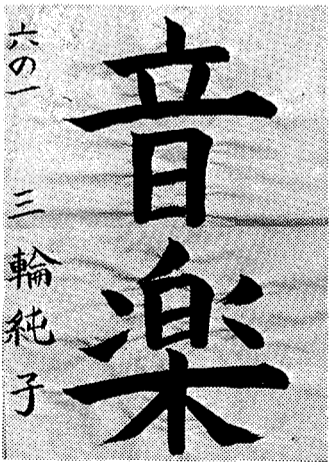 音楽
六の一 三輪純子